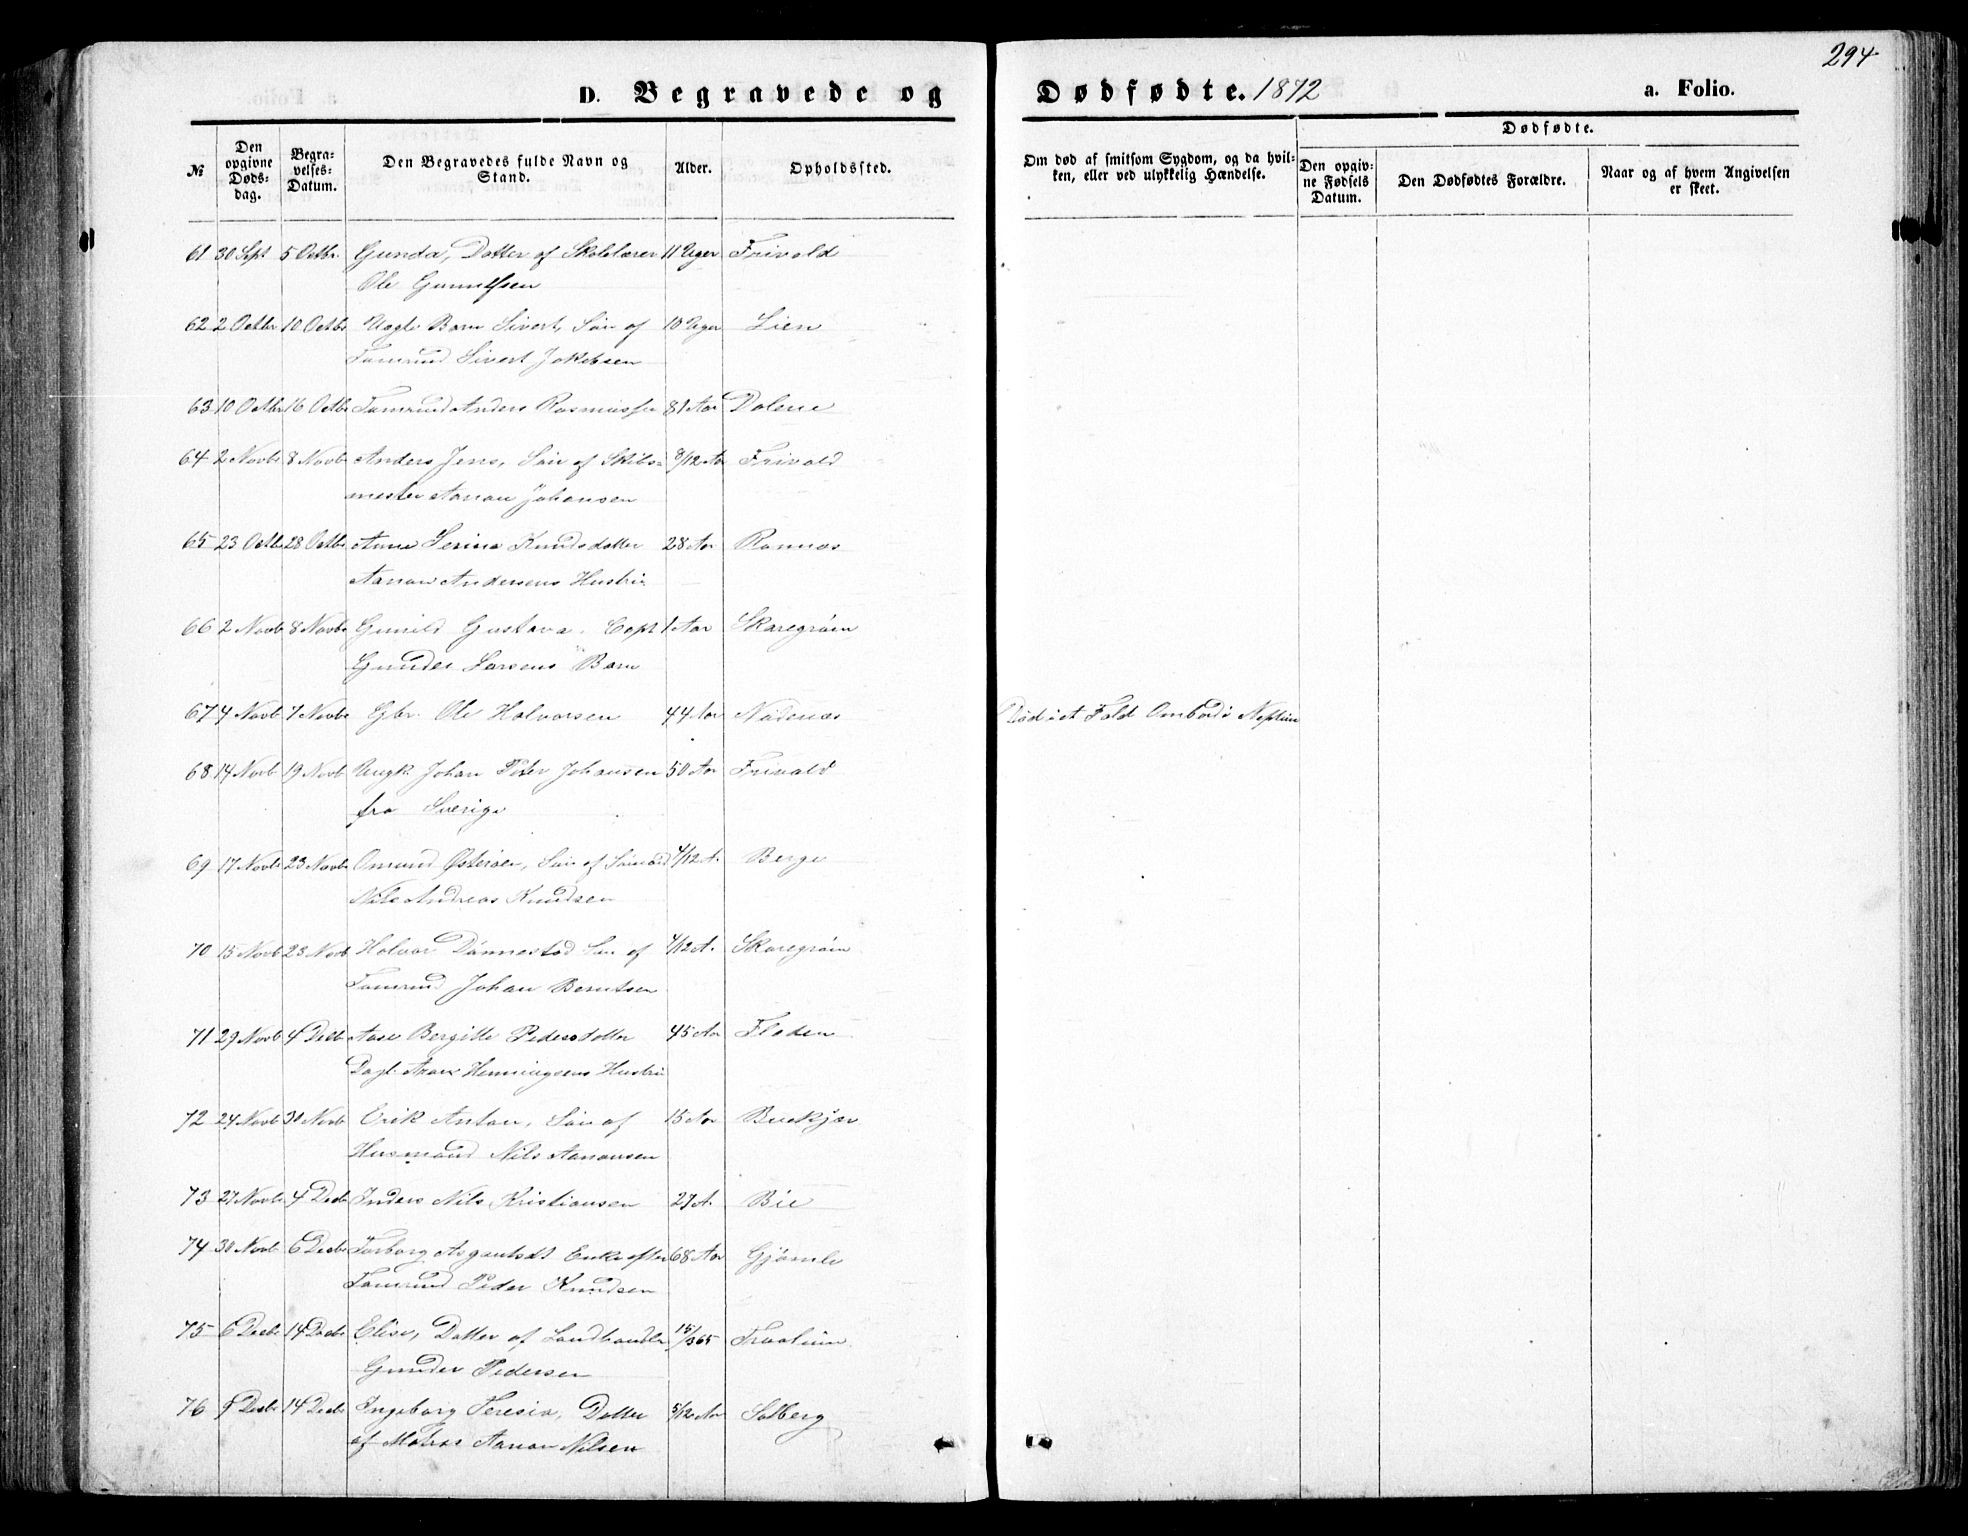 294
D. Begravede og Dødfødte. 1872 a. Folio.
Dødfødte.
№ Den opgivne Dødsdag. Begravelses-Datum. Den Begravedes fulde Navn og Stand. Alder. Opholdssted. Om død af smitsom Sygdom, og da hvilken, eller ved ulykkelig Hændelse. Den opgivne Fødsels Datum. Den Dødfødtes Forældre. Naar og af hvem Angivelsen er skeet.
61 30 Sept 5 Octbr. Gunda, Datter af Skolelærer 11 Uger Frivold
Ole Gunnulfsen
62 2 Octbr 10 Octbr Uægte Barn Sivert, Søn af 10 Uger Lien
Tømrmd Sivert Jakobsen
63 10 Octbr 16 Octbr Tømrmd Anders Rasmussen 81 Aar Dolene
64 2 Novbr 8 Novbr Anders Jens, Søn af Skibs- 8/12 Aar Frivold
mester Aanon Johansen
65 23 Octbr 28 Octbr Anne Serine Knudsdatter 28 Aar Rannæs
Aanon Andersens Hustru
66 2 Novbr 8 Novbr Gunild Gustava. Capt 1 Aar Skaregrøm
Gunder Larsens Barn
67 4 Novbr 7 Novbr Gbr. Ole Halvorsen 44 Aar Nidenæs Død i et Fald Ombord i Neptun
68 14 Novb 19 Novb Ungk. Johan Peter Johansen 50 Aar Frivold
fra Sverige
69 17 Novbr 23 Novbr Omund Østerøen, Søn af 4/12 A. Berge
Nils Andreas Knudsen
70 15 Novbr 23 Novb Halvor Dannestad Søn af 4/12 A. Skaregrøm
Tømrmd Johan Berntsen
71 29 Novb 4 Decbr Aase Bergitte Pedersdatter 45 Aar Fladen
Dagl. Henningsens Hustru
72 24 Novbr 30 Novb Erik Anton, Søn af 15 Aar Buckjær
Husmand Nils Aanonsen
73 27 Novbr 4 Decbr Inders Nils Kristiansen 27 A. Bie
74 30 Novb 6 Decbr Torborg Asgautsdt Enke efter 68 Aar Gjømle
Tømrmd Peder Knudsen
75 6 Decbr 14 Decbr Elise, Datter af Landhandler 15/365
Gunder Pedersen
76 9 Decbr 14 Decbr Ingeborg Teresia, Datter 5/12 Aar Solberg
af Matros Aanon Nilsen